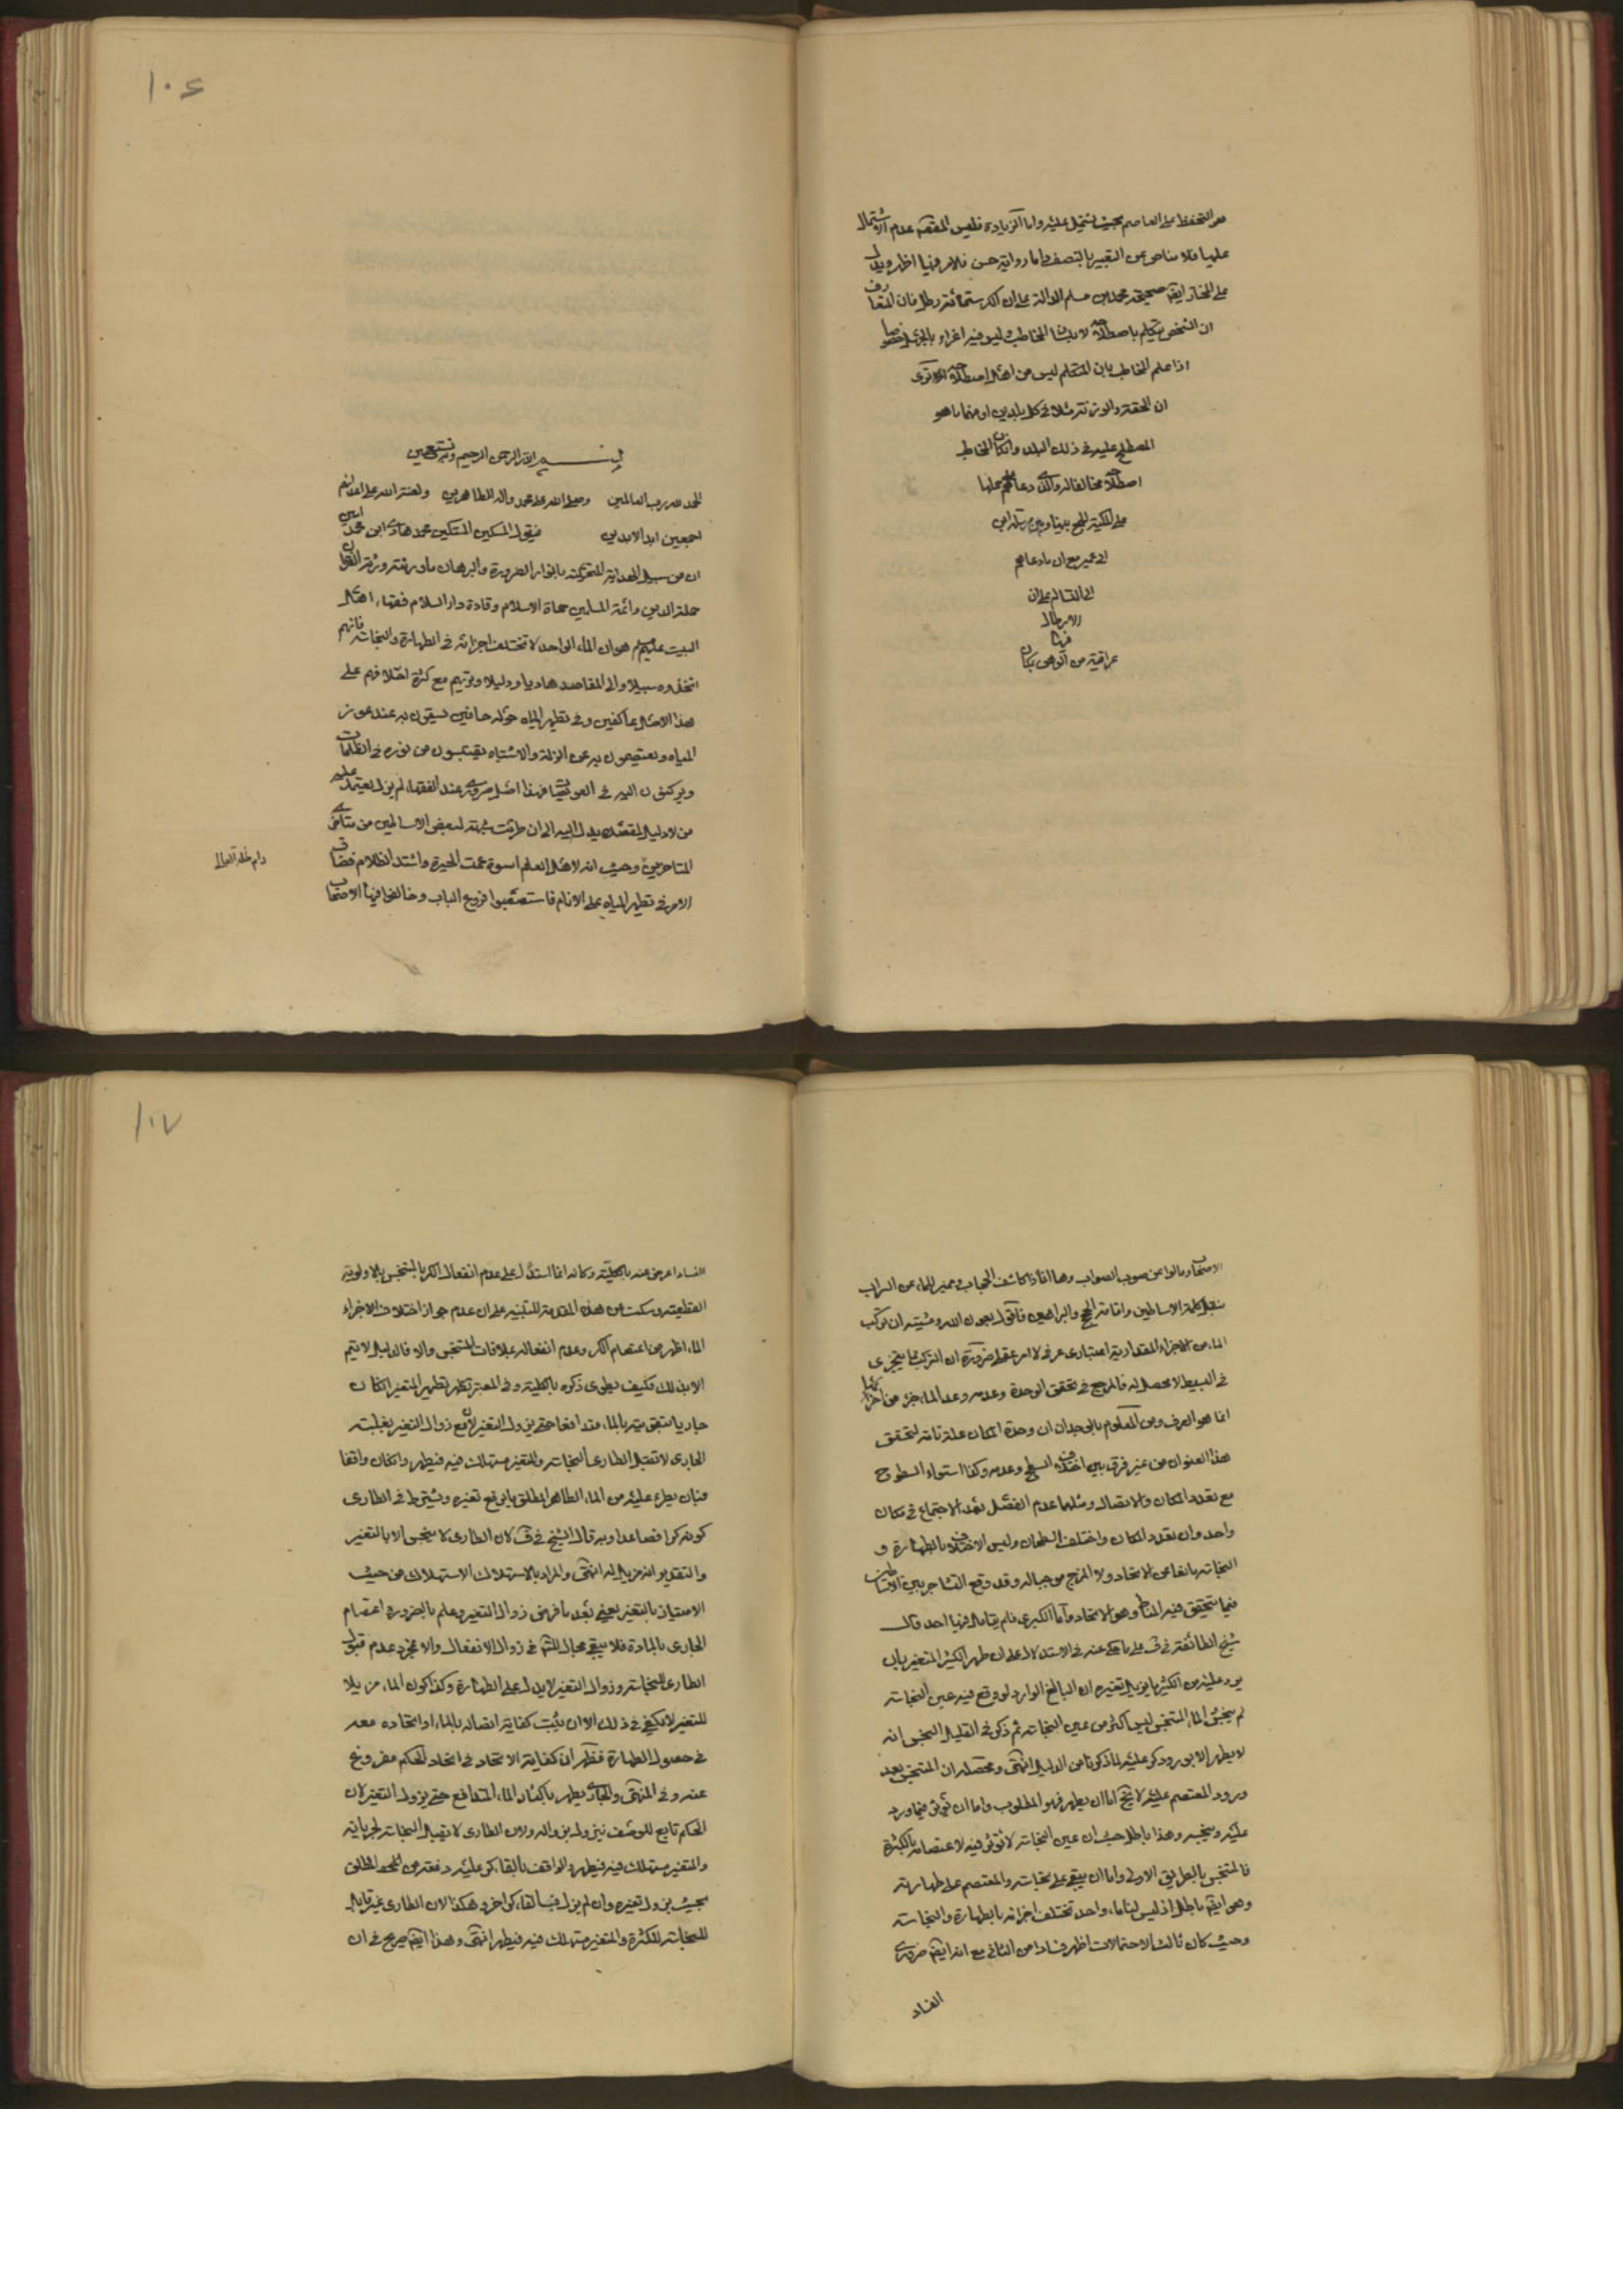 مع التحفظ على العاصم بحيث يشتمل عليه واما الزيادة فليس المقصد عدم الاشتمال
عليها فلا مناص عن التعبير بالنصف واما رواية حسن فلامر فيها اظهر ويدل
على المختار ايضا صحيحة محمد بن مسلم الدالة على ان الكر ستمائة رطل فان المتعارف
ان الشخص يتكلم باصطلاحه لا بلسان المخاطب وليس فيه اغراء بالجهل خصوصا
اذا علم المخاطب بان المتكلم ليس من اهل اصطلاحه الا ترى
ان الحقة والوزنة مثلا في كل بلد يراد منهما ما هو
المصطلح عليه في ذلك البلد وان كان المخاطب
اصطلاحه مخالفا له والذي دعاهم حملها
على المكية الجمع بينها وبين مرسلة ابن
ابي عمير مع ان ما دعاهم
الى القتال على ان
الارطال
فيها
عراقية من الوهن بمكان
١٠٦
بسم الله الرحمن الرحيم وبه نستعين
الحمد لله رب العالمين وصلى الله على محمد واله الطاهرين ولعنة الله على اعدائهم
اجمعين ابد الابدين فيقول المسكين المستكين محمد هادي ابن محمد امين
ان من سبيل الهداية المتحركة بانوار الضرورة والبرهان ما ورثته ورثة القران
حملة الدين وائمة المسلمين حماة الاسلام وقادة دار السلام فقهاء اهل
البيت عليهم السلام هو ان الماء الواحد لا تختلف اجزائه في الطهارة والنجاسة فانهم
اتخذوه سبيلا والى المقاصد هاديا ودليلا وتريهم مع كثرة اختلافهم على
هذا الاصل عاكفين وفي تطهير المياه حوله حافين يستقون به عند عوز
المياه ويعتصمون به عن الزلة والاشتباه يقتبسون من نوره في الظلمات
ويركنون اليه في العويصات فهذا اصل ضروري عند الفقهاء لم يزل يعتمد عليه
من لا دليل لمقصده يدل اليه الى ان طرئت شبهة لبعض الاساطين من متاخري
المتاخرين وحيث انه لاهل العلم اسوة عمت الحيرة واشتد الظلام فضاق
الامر في تطهير المياه على الانام فاستصعبوا فروع الباب وخالفوا فيها الاصحاب
دام ظله العالي
الاصحاب ومالوا عن صوب الصواب وها انا ذا كاشف الحجاب ومميز الماء عن السراب
بنقل كلمة الاساطين واقامة الحجج والبراهين فاقول بعون الله ومشيته ان تركب
الماء من الاجزاء المقدارية اعتباري عرفي لا امر عقلي ضرورة ان التركب مما يتجزى
في البسيط لا محصل له فالمرجع في تحقق الوحدة وعدمه وعد الماء جزء من اجزائها
انما هو العرف ومن المعلوم بالوجدان ان وحدة المكان علة تامة لتحقق
هذا العنوان من غير فرق بين اختلاف السطح وعدمه وكذا استواء السطوح
مع تعدد المكان والاتصال ومثلهما عدم الفصل بعد الاجتماع في مكان
واحد وان تعدد المكان واختلف السطحان وليس الاختلاف بالطهارة و
النجاسة مانعا عن الاتحاد ولا المزج موجبا له وقد وقع التشاجر بين الاساطين
فيما يتحقق فيه المناط وهو الاتحاد واما الكبرى فلم يتامل فيها احد قال
شيخ الطائفة في ف على ما حكي عنه في الاستدلال على ان طهر الكثير المتغير بان
يرد عليه من الكثير ما يزيل تغيره ان البالغ الوارد لو وقع فيه عين النجاسة
لم ينجس الماء المتنجس ليس اكثر من عين النجاسة ثم ذكر في القليل النجس انه
لا يطهر الا بورود كر عليه لما ذكرنا من الدليل انتهى ومحصله ان المتنجس بعد
ورود المعتصم عليه لا يخ اما ان يطهر فهو المطلوب واما ان تؤثر فيما ورد
عليه وينجسه وهذا باطل حيث ان عين النجاسة لا تؤثر فيه لاعتصامه بالكثرة
فالمتنجس بالطريق الاولى واما ان يبقى على نجاسته والمعتصم على طهارته
وهو ايضا باطل اذ ليس لنا ماء واحد تختلف اجزائه بالطهارة والنجاسة
وحيث كان ثالث الاحتمالات اظهر فسادا من الثاني مع انه ايضا ضروري
الفساد
١٠٧
الفساد اعرض عنه بالكلية وكانه انما استدل على عدم انفعال الكر بالمتنجس بالاولوية
القطعية وسكت عن هذه المقدمة للتنبيه على ان عدم جواز اختلاف الاجزاء
الماء اظهر من اعتصام الكر وعدم انفعاله بملاقات المتنجس والا فالدليل لا يتم
الا بذلك فكيف يطوى ذكره بالكلية وفي المعتبر تطهر تطهير المتغير ان كان
جاريا يتقويته بالماء متدافعا حتى يزول التغير لان مع زوال التغير بغلبة
الجاري لا تقبل الطاري النجاسة والمتغير مستهلك فيه فيطهر وان كان واقفا
فبان يطرء عليه من الماء الطاهر المطلق ما يرفع تغيره ويشترط في الطاري
كونه كرا فصاعدا وبه قال الشيخ في ف لان الطاري لا ينجس الا بالتغير
والتقدير انه مزيل له انتهى والمراد بالاستهلاك الاستهلاك من حيث
الامتياز بالتغير يعني بعد ما فرض زوال التغير وعلم بالضرورة اعتصام
الجاري بالمادة فلا يبقى مجال للشك في زوال الانفعال والا فمجرد عدم قبول
الطاري النجاسة وزوال التغير لا يدل على الطهارة وكذا كون الماء مزيلا
للتغير لا يكفي في ذلك الا ان يثبت كفاية اتصاله بالماء او اتحاده معه
في حصول الطهارة فظهر ان كفاية الاتحاد في اتحاد الحكم مفروغ
عنه وفي المنتهى والجاري يطهر باكثار الماء المتدافع حتى يزول التغير لان
الحكم تابع للوصف فيزول بزواله ولان الطاري لا تقبل النجاسة لجريانه
والمتغير مستهلك فيه فيطهر والواقف بالقاء كر عليه دفعة من المطلق
بحيث يزول تغيره وان لم يزل فبالقاء كر اخر وهكذا لان الطاري غير قابل
للنجاسة للكثرة والمتغير مستهلك فيه فيطهر انتهى وهذا ايضا صريح في ان